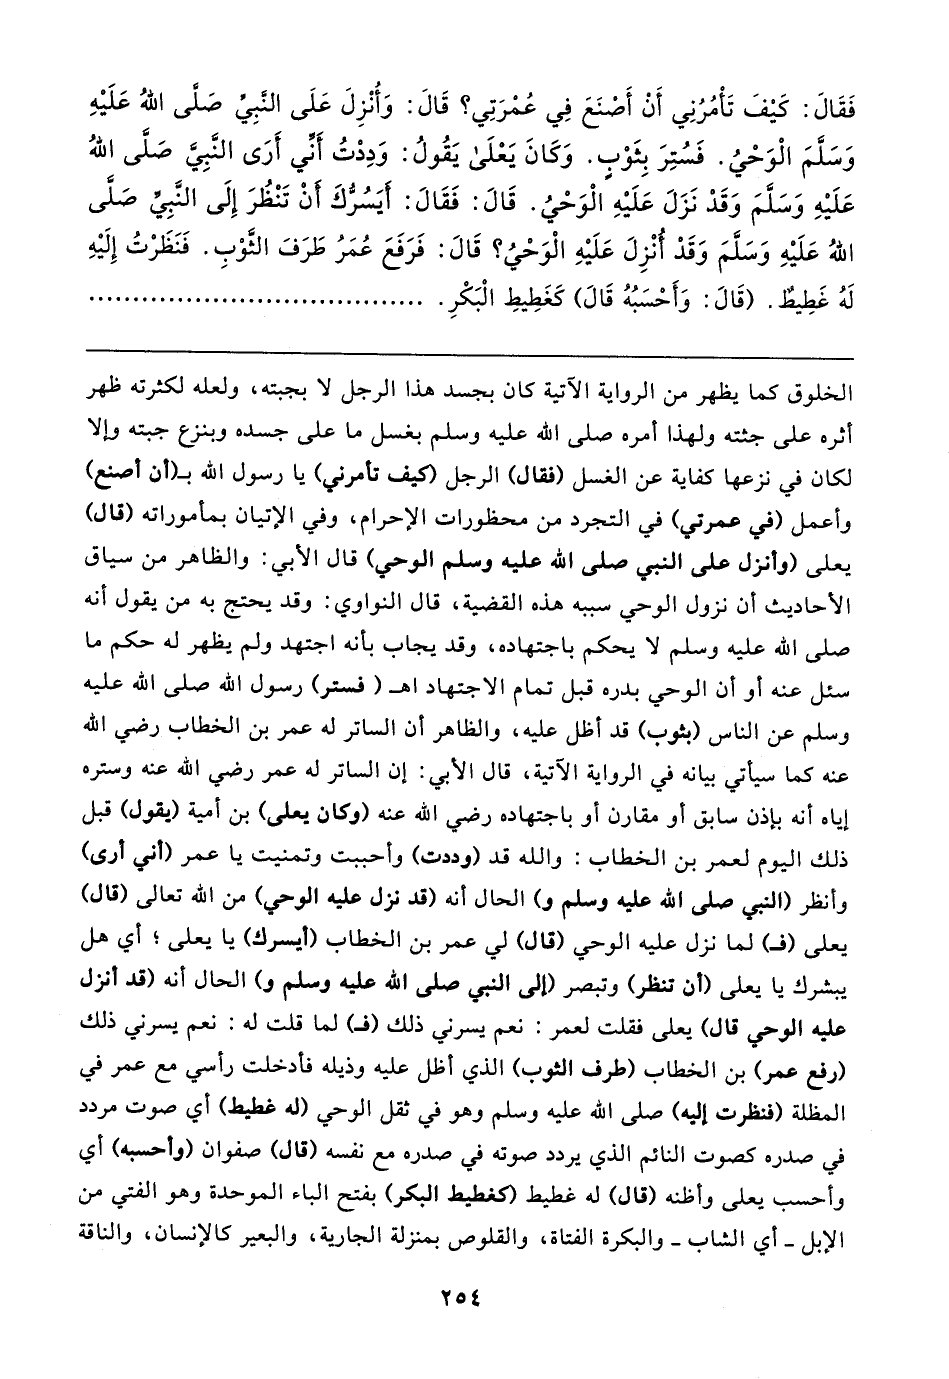 فَقَالَ: كَيْفَ تَأْمُرُنِي أَنْ أَصْنَعَ فِي عُمْرَتِي؟ قَالَ: وَأُنْزِلَ عَلَى النَّبِيِّ صَلَّى اللهُ عَلَيْهِ
وَسَلَّمَ الْوَحْيُ. فَسُتِرَ بِثَوْبٍ. وَكَانَ يَعْلَىٰ يَقُولُ: وَدِدْتُ أَنِّي أَرَى النَّبِيَّ صَلَّى اللهُ
عَلَيْهِ وَسَلَّمَ وَقَدْ نَزَلَ عَلَيْهِ الْوَحْيُ. قَالَ: فَقَالَ: أَيَسُرُّكَ أَنْ تَنْظُرَ إِلَى النَّبِيِّ صَلَّى
اللهُ عَلَيْهِ وَسَلَّمَ وَقَدْ أُنْزِلَ عَلَيْهِ الْوَحْيُ؟ قَالَ: فَرَفَعَ عُمَرُ طَرَفَ الثَّوْبِ. فَنَظَرْتُ إِلَيْهِ
لَهُ غَطِيطٌ. (قَالَ: وَأَحْسَبُهُ قَالَ) كَغَطِيطِ الْبَكْرِ. ......................................
الخلوق كما يظهر من الرواية الآتية كان بجسد هذا الرجل لا بجبته، ولعله لكثرته ظهر
أثره على جثته ولهذا أمره صلى الله عليه وسلم بغسل ما على جسده وبنزع جبته وإلا
لكان في نزعها كفاية عن الغسل (فقال) الرجل (كيف تأمرني) يا رسول الله بـ(أن أصنع)
وأعمل (في عمرتي) في التجرد من محظورات الإحرام، وفي الإتيان بمأموراته (قال)
يعلى (وأنزل على النبي صلى الله عليه وسلم الوحي) قال الأبي: والظاهر من سياق
الأحاديث أن نزول الوحي سببه هذه القضية، قال النواوي: وقد يحتج به من يقول أنه
صلى الله عليه وسلم لا يحكم باجتهاده، وقد يجاب بأنه اجتهد ولم يظهر له حكم ما
سئل عنه أو أن الوحي بدره قبل تمام الاجتهاد اهـ (فستر) رسول الله صلى الله عليه
وسلم عن الناس (بثوب) قد أظل عليه، والظاهر أن الساتر له عمر بن الخطاب رضي الله
عنه كما سيأتي بيانه في الرواية الآتية، قال الأبي: إن الساتر له عمر رضي الله عنه وستره
إياه أنه بإذن سابق أو مقارن أو باجتهاده رضي الله عنه (وكان يعلى) بن أمية (يقول) قبل
ذلك اليوم لعمر بن الخطاب: والله قد (وددت) وأحببت وتمنيت يا عمر (أني أرى)
وأنظر (النبي صلى الله عليه وسلم و) الحال أنه (قد نزل عليه الوحي) من الله تعالى (قال)
يعلى (فـ) لما نزل عليه الوحي (قال) لي عمر بن الخطاب (أيسرك) يا يعلى ؛ أي هل
يبشرك يا يعلى (أن تنظر) وتبصر (إلى النبي صلى الله عليه وسلم و) الحال أنه (قد أنزل
عليه الوحي قال) يعلى فقلت لعمر: نعم يسرني ذلك (فـ) لما قلت له: نعم يسرني ذلك
(رفع عمر) بن الخطاب (طرف الثوب) الذي أظل عليه وذيله فأدخلت رأسي مع عمر في
المظلة (فنظرت إليه) صلى الله عليه وسلم وهو في ثقل الوحي (له غطيط) أي صوت مردد
في صدره كصوت النائم الذي يردد صوته في صدره مع نفسه (قال) صفوان (وأحسبه) أي
وأحسب يعلى وأظنه (قال) له غطيط (كغطيط البكر) بفتح الباء الموحدة وهو الفتي من
الإبل - أي الشاب - والبكرة الفتاة، والقلوص بمنزلة الجارية، والبعير كالإنسان، والناقة
٢٥٤